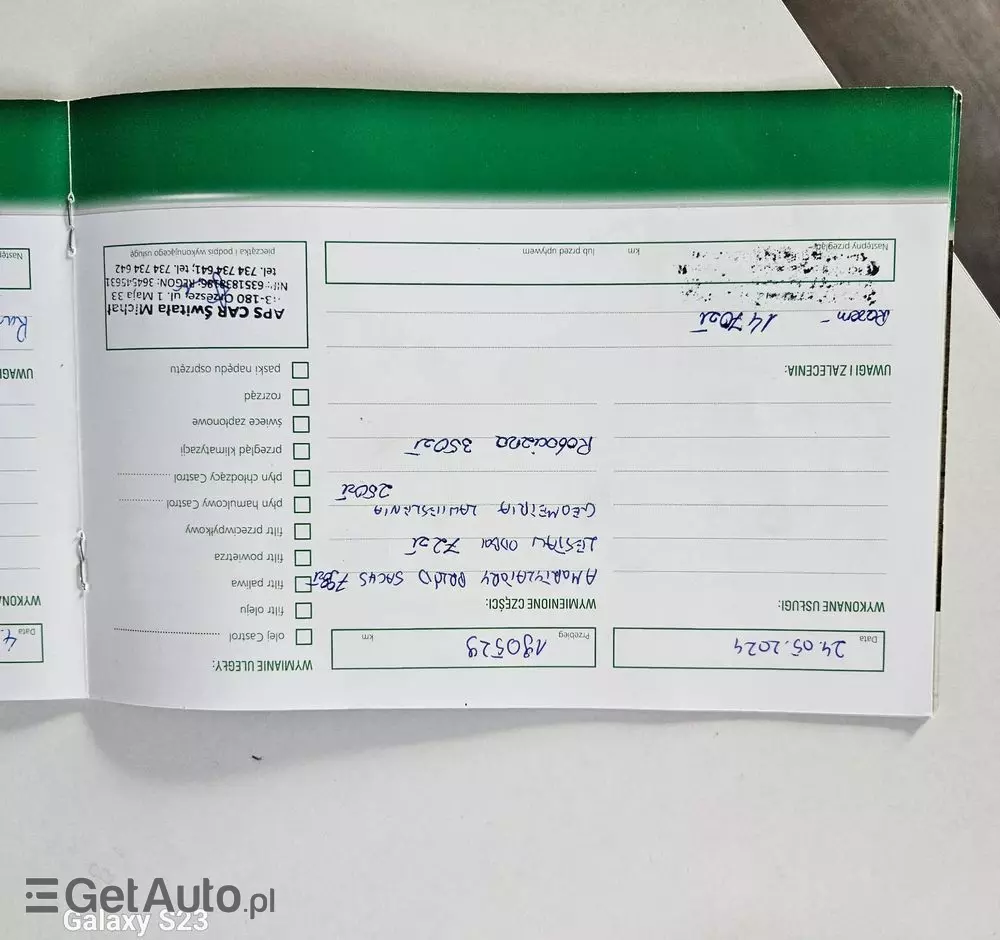 Data 24.05.2024
Przebieg 190529 km
WYMIANIE ULEGŁY:
WYKONANE USŁUGI:
WYMIENIONE CZĘŚCI:
AMORTYZATORY PRZÓD SACHS
ZESTAW ODBOI 72 zł
GEOMETRIA ZAWIESZENIA
280 zł
Robocizna 350 zł
olej Castrol
filtr oleju
filtr paliwa
filtr powietrza
filtr przeciwpyłkowy
płyn hamulcowy Castrol
płyn chłodzący Castrol
przegląd klimatyzacji
świece zapłonowe
rozrząd
paski napędu osprzętu
UWAGI I ZALECENIA:
Razem - 1470 zł
Następny przegląd:
km
lub przed upływem
APS CAR Świtała Michał
43-180 Orzesze, ul. 1 Maja 33
NIP: 6351838196; REGON: 364545631
tel. 734 734 641; tel. 734 734 642
pieczątka i podpis wykonującego usługę
Data 4.
WYKONA
UWAGI
Nastę
GetAuto.pl
Galaxy S23